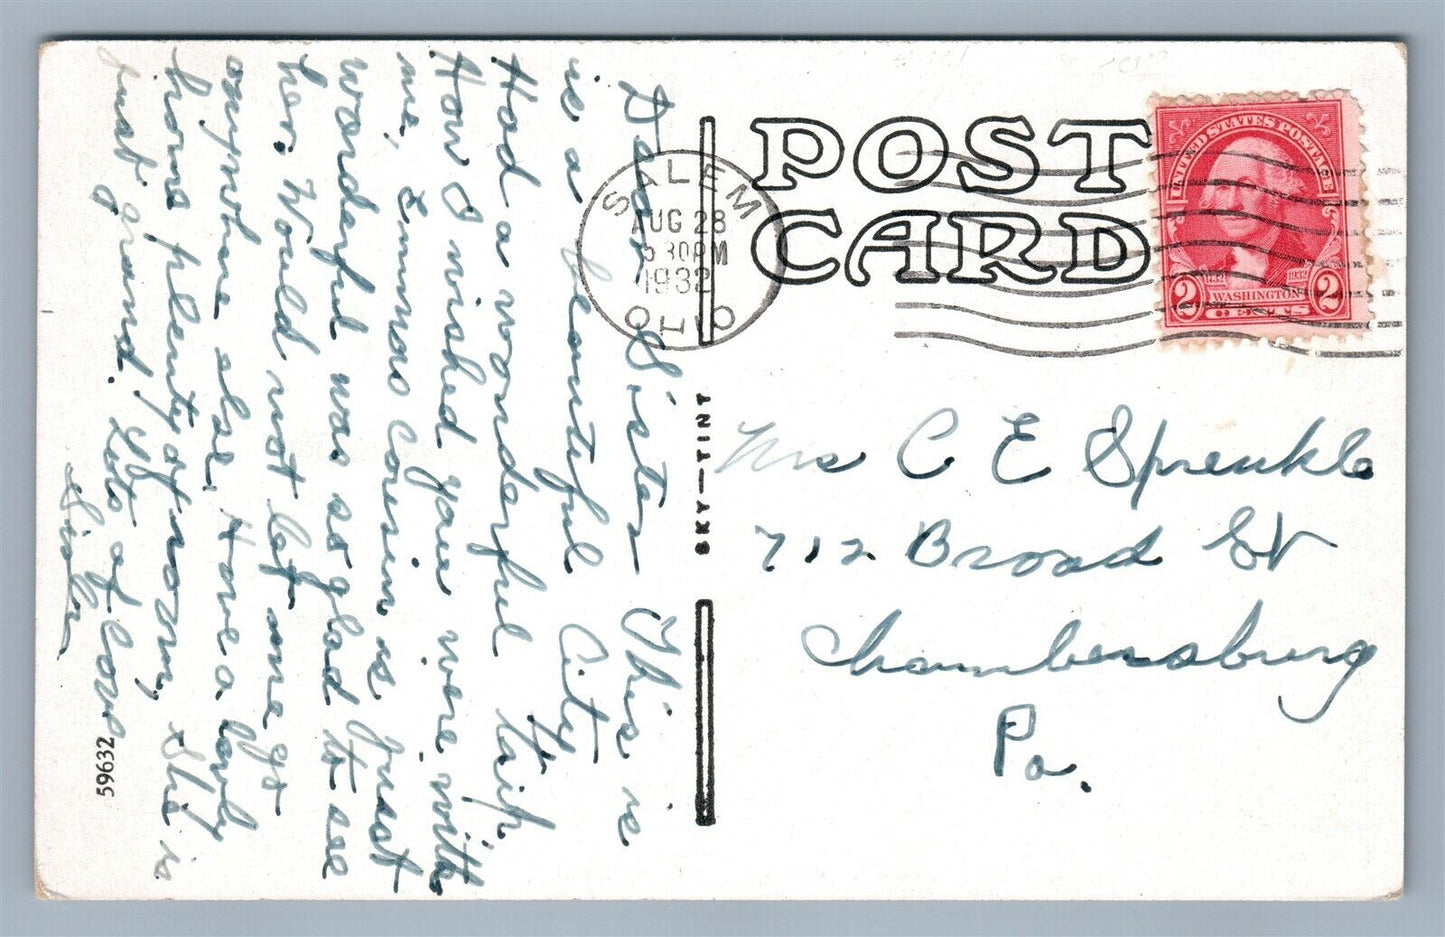 Dad Sister This is
is a beautiful City
Had a wonderful trip.
How I wished you were with
me, Emmas Cousin is just
wonderful was so glad to see
her. Would not let me go
anywhere else, Have a lovely
home plenty of room, She is
just grand. Lots of Love
Sister
59632
SKY-TINT
POST
CARD
SALEM
AUG 28
5 30 PM
1932
OHIO
UNITED STATES POSTAGE
1732 1932
2 WASHINGTON 2
CENTS
Mrs C E Sprenkle
712 Broad St
Chambersburg
Pa.